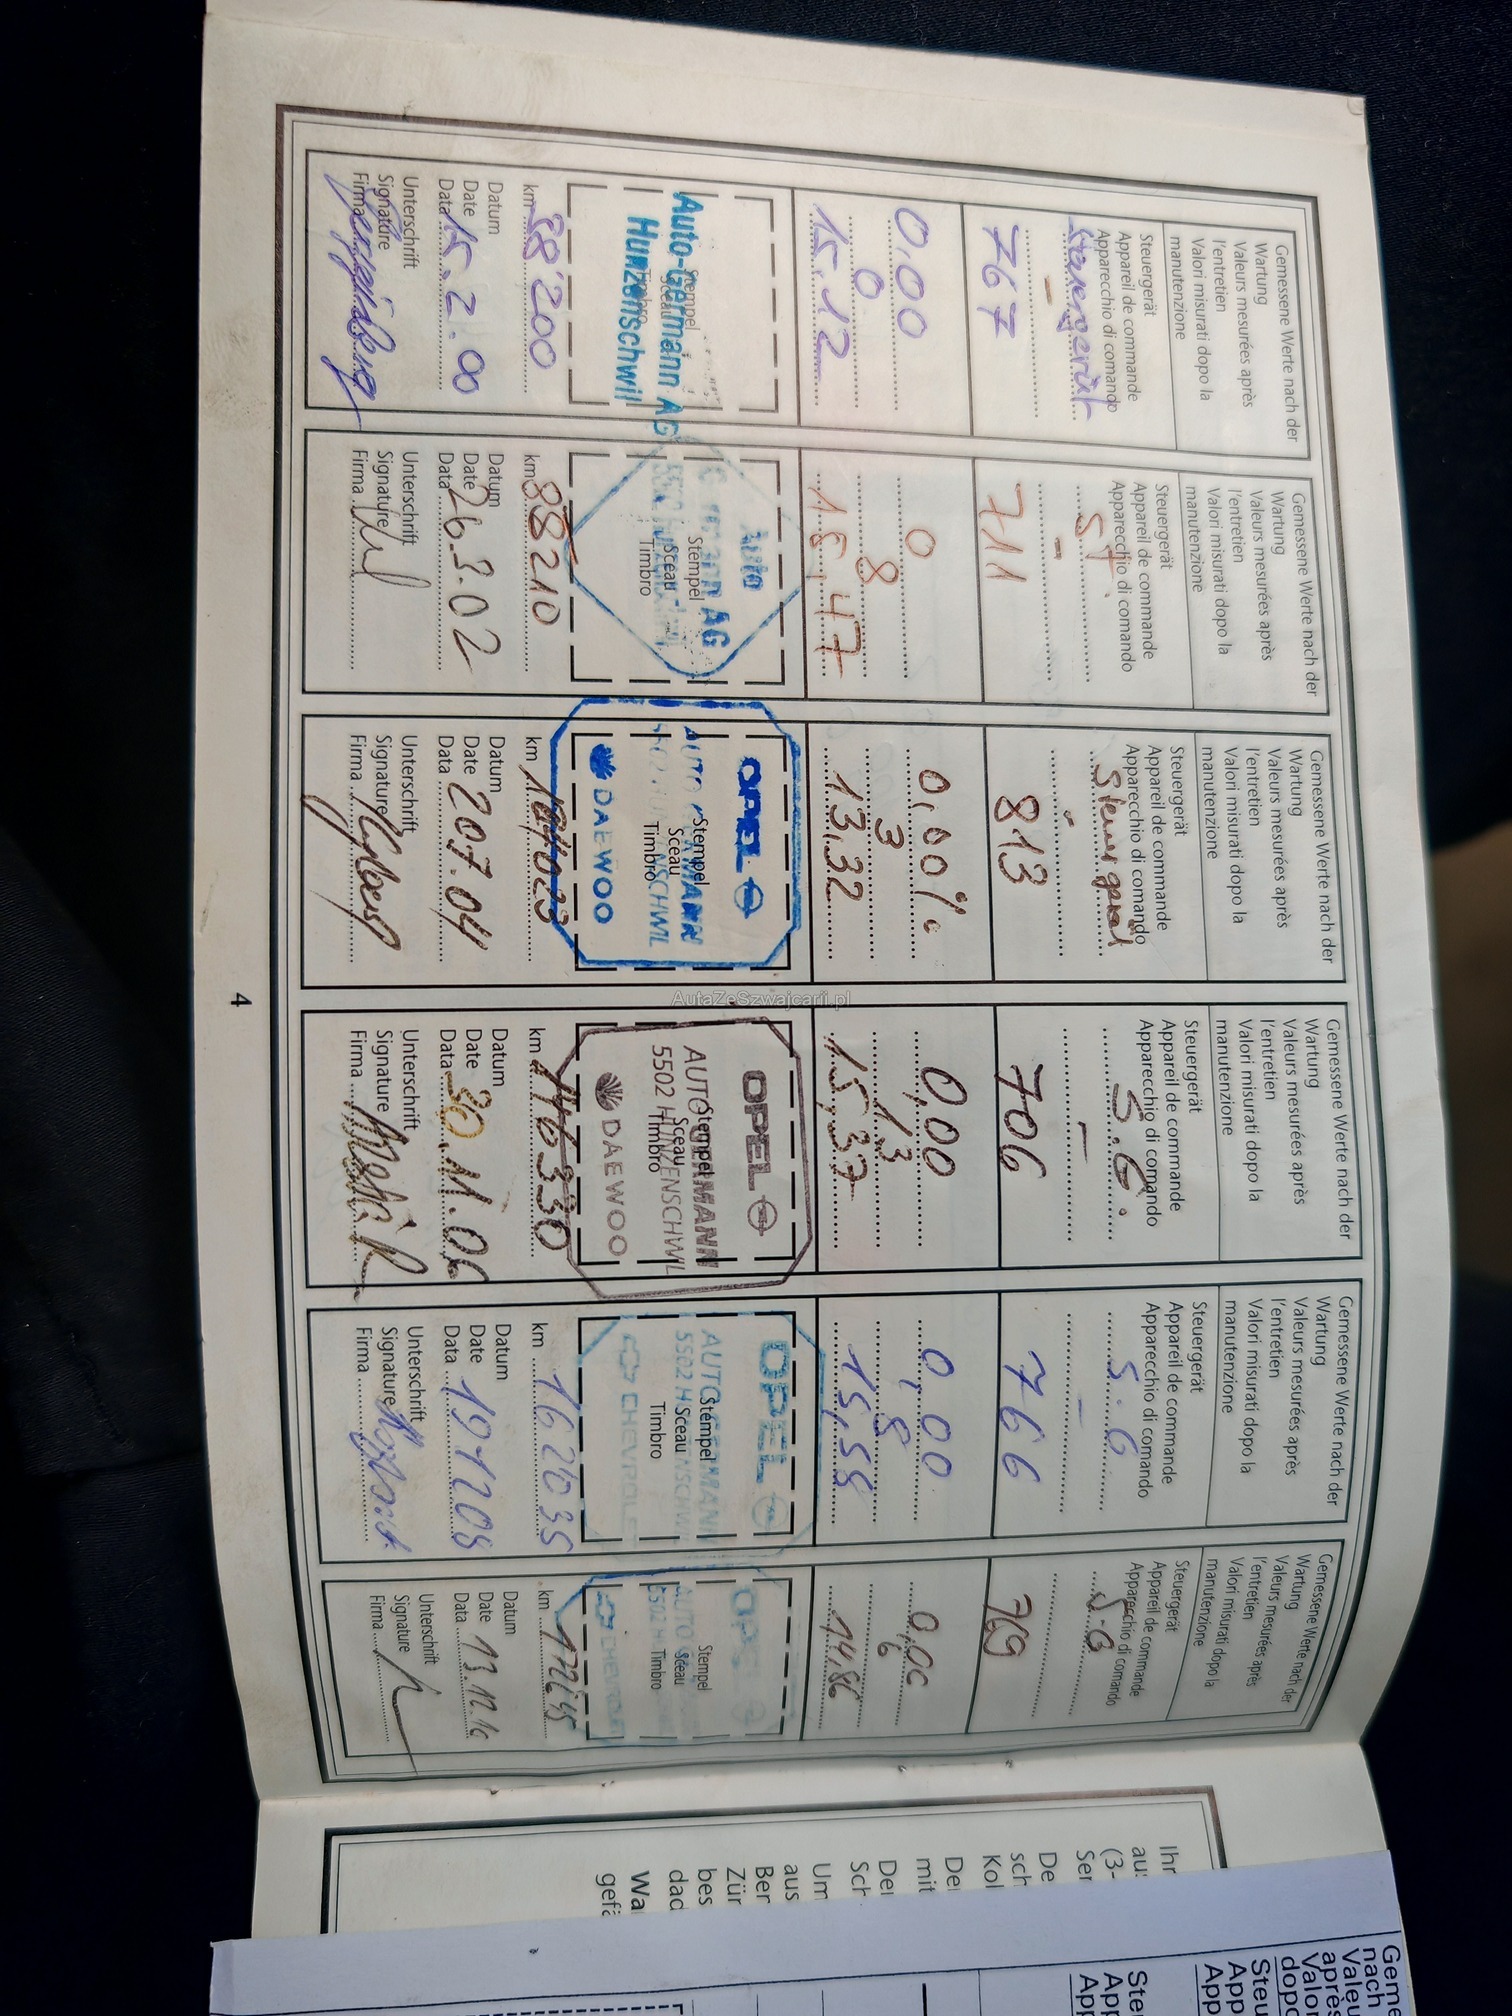 Gemessene Werte nach der
Wartung
Valeurs mesurées après
l'entretien
Valori misurati dopo la
manutenzione
Steuergerät
Appareil de commande
Apparecchio di comando
Steuergerät
-
767
0,000
0
15.12
Auto-Germann AG
Hunzenschwil
Stempel
Sceau
Timbro
km 58'200
Datum
Date
Data 15.2.00
Unterschrift
Signature
Firma
Gemessene Werte nach der
Wartung
Valeurs mesurées après
l'entretien
Valori misurati dopo la
manutenzione
Steuergerät
Appareil de commande
Apparecchio di comando
-
711
0
8
15,47
Auto
AG
Stempel
Sceau
Timbro
km 88210
Datum
Date
Data 26.3.02
Unterschrift
Signature
Firma
Gemessene Werte nach der
Wartung
Valeurs mesurées après
l'entretien
Valori misurati dopo la
manutenzione
Steuergerät
Appareil de commande
Apparecchio di comando
Steuergerät
-
813
0,00%
3
13,32
OPEL
Stempel
Sceau
Timbro
DAEWOO
km 104023
Datum
Date 20.7.04
Data
Unterschrift
Signature
Firma
Gemessene Werte nach der
Wartung
Valeurs mesurées après
l'entretien
Valori misurati dopo la
manutenzione
Steuergerät
Appareil de commande
Apparecchio di comando
S.G.
-
706
0,00
13
15,37
OPEL
AUTO GERMANN
5502 HUNZENSCHWIL
Stempel
Sceau
Timbro
DAEWOO
km 146330
Datum
Date
Data 30.11.06
Unterschrift
Signature
Firma
Gemessene Werte nach der
Wartung
Valeurs mesurées après
l'entretien
Valori misurati dopo la
manutenzione
Steuergerät
Appareil de commande
Apparecchio di comando
S.G
-
766
0,00
8
15,58
OPEL
AUTO GERMANN
5502 HUNZENSCHWIL
Stempel
Sceau
Timbro
CHEVROLET
km 162035
Datum
Date
Data 191208
Unterschrift
Signature
Firma
Gemessene Werte nach der
Wartung
Valeurs mesurées après
l'entretien
Valori misurati dopo la
manutenzione
Steuergerät
Appareil de commande
Apparecchio di comando
S.G
769
0,00
6
14,86
OPEL
AUTO
5502
Stempel
Sceau
Timbro
CHEVROLET
km
Datum
Date 13.12.10
Data
Unterschrift
Signature
Firma
4
AutaZeSzwajcarii.pl
Ihr
(3-
Ser
De
sch
Kol
De
mit
Der
Sch
Um
aus
Ber
Zür
bes
dad
Wa
gefä
Geme
nach
Vale
après
Valor
dopo
Steu
App
Ap